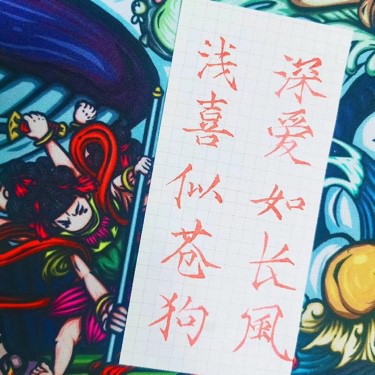 深爱如长風
浅喜似苍狗